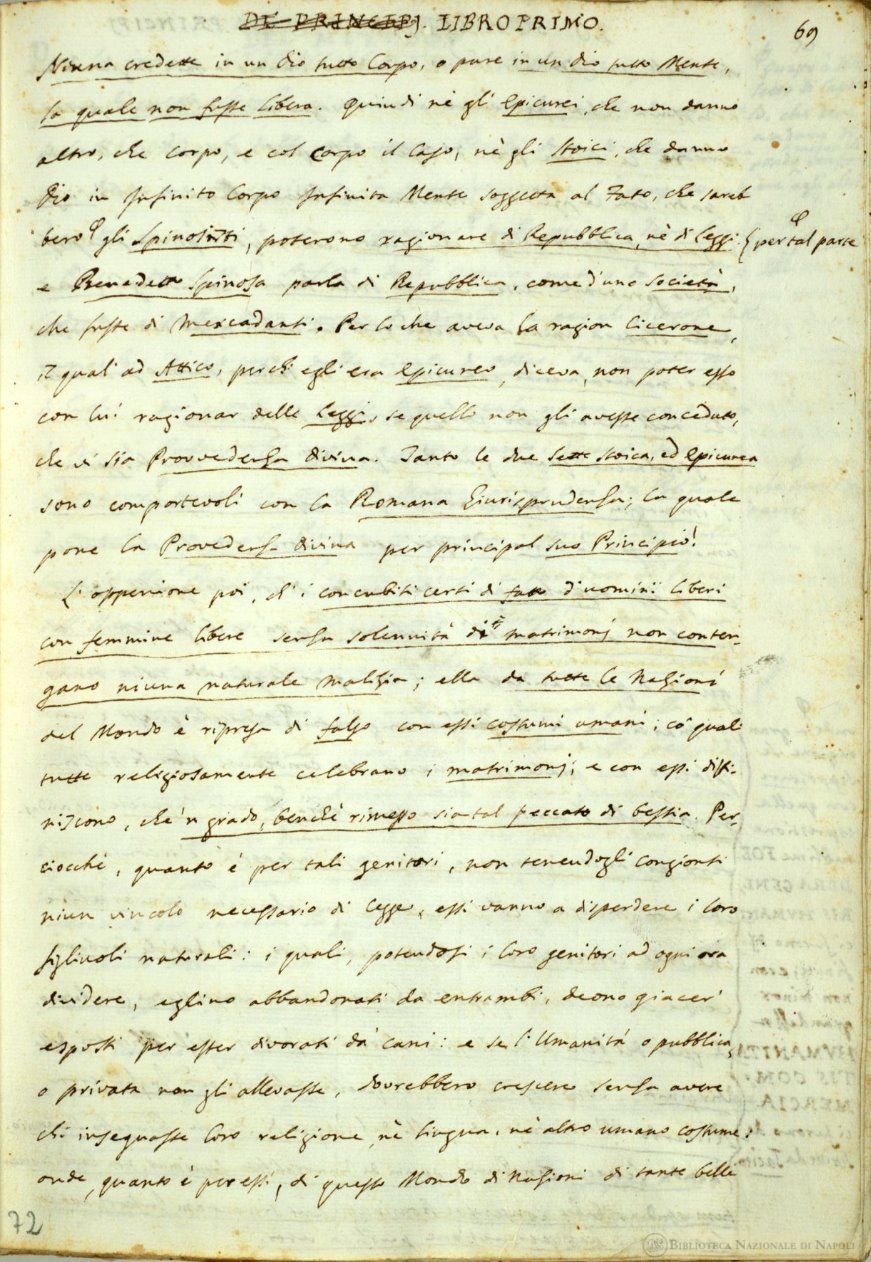 DE' PRINCIPJ. LIBRO PRIMO.
69
Niuna credette in un dio tutto Corpo, o pure in un dio tutto Mente,
la quale non fusse libera. Quindi nè gli Epicurei, che non danno
altro, che corpo, e col corpo il Caso, nè gli Stoici, che danno
Dio in Infinito Corpo Infinita Mente soggetta al Fato, che sareb
bero gli Spinosisti, poterono ragionare di Repubblica, nè di Leggi:
per tal parte
e Benedetto Spinosa parla di Repubblica, come d'una Società,
che fusse di Mercadanti. Per lo che aveva la ragion Cicerone,
il qual' ad Attico, perch' egli era Epicureo, diceva, non poter esso
con lui ragionar delle Leggi, se quello non gli avesse conceduto,
che vi sia Provvedenza divina. Tanto le due Sette Stoica, ed Epicurea
sono comportevoli con la Romana Giurisprudenza; la quale
pone la Provedenza divina per principal suo Principio!
L' oppenione poi, ch' i concubiti certi di fatto d'uomini liberi
con femmine libere senza solennità di matrimonj non conten-
gano niuna naturale malizia; ella da tutte le Nazioni
del Mondo è ripresa di falso con essi costumi umani; co' quali
tutte religiosamente celebrano i matrimonj; e con essi diffi-
niscono, che'n grado, benchè rimesso sia tal peccato di bestia. Per-
ciocchè, quanto è per tali genitori, non tenendogli congionti
niun vincolo necessario di legge, essi vanno a disperdere i loro
figliuoli naturali: i quali, potendosi i loro genitori ad ogni ora
dividere, eglino abbandonati da entrambi, deono giacer'
esposti per esser divorati da' cani: e se l' Umanità o pubblica,
o privata non gli allevasse, dovrebbero crescere senza avere
chi insegnasse loro religione, nè lingua, nè altro umano costume:
onde, quanto è per essi, di questo Mondo di Nazioni di tante belle
72
BIBLIOTECA NAZIONALE DI NAPOLI